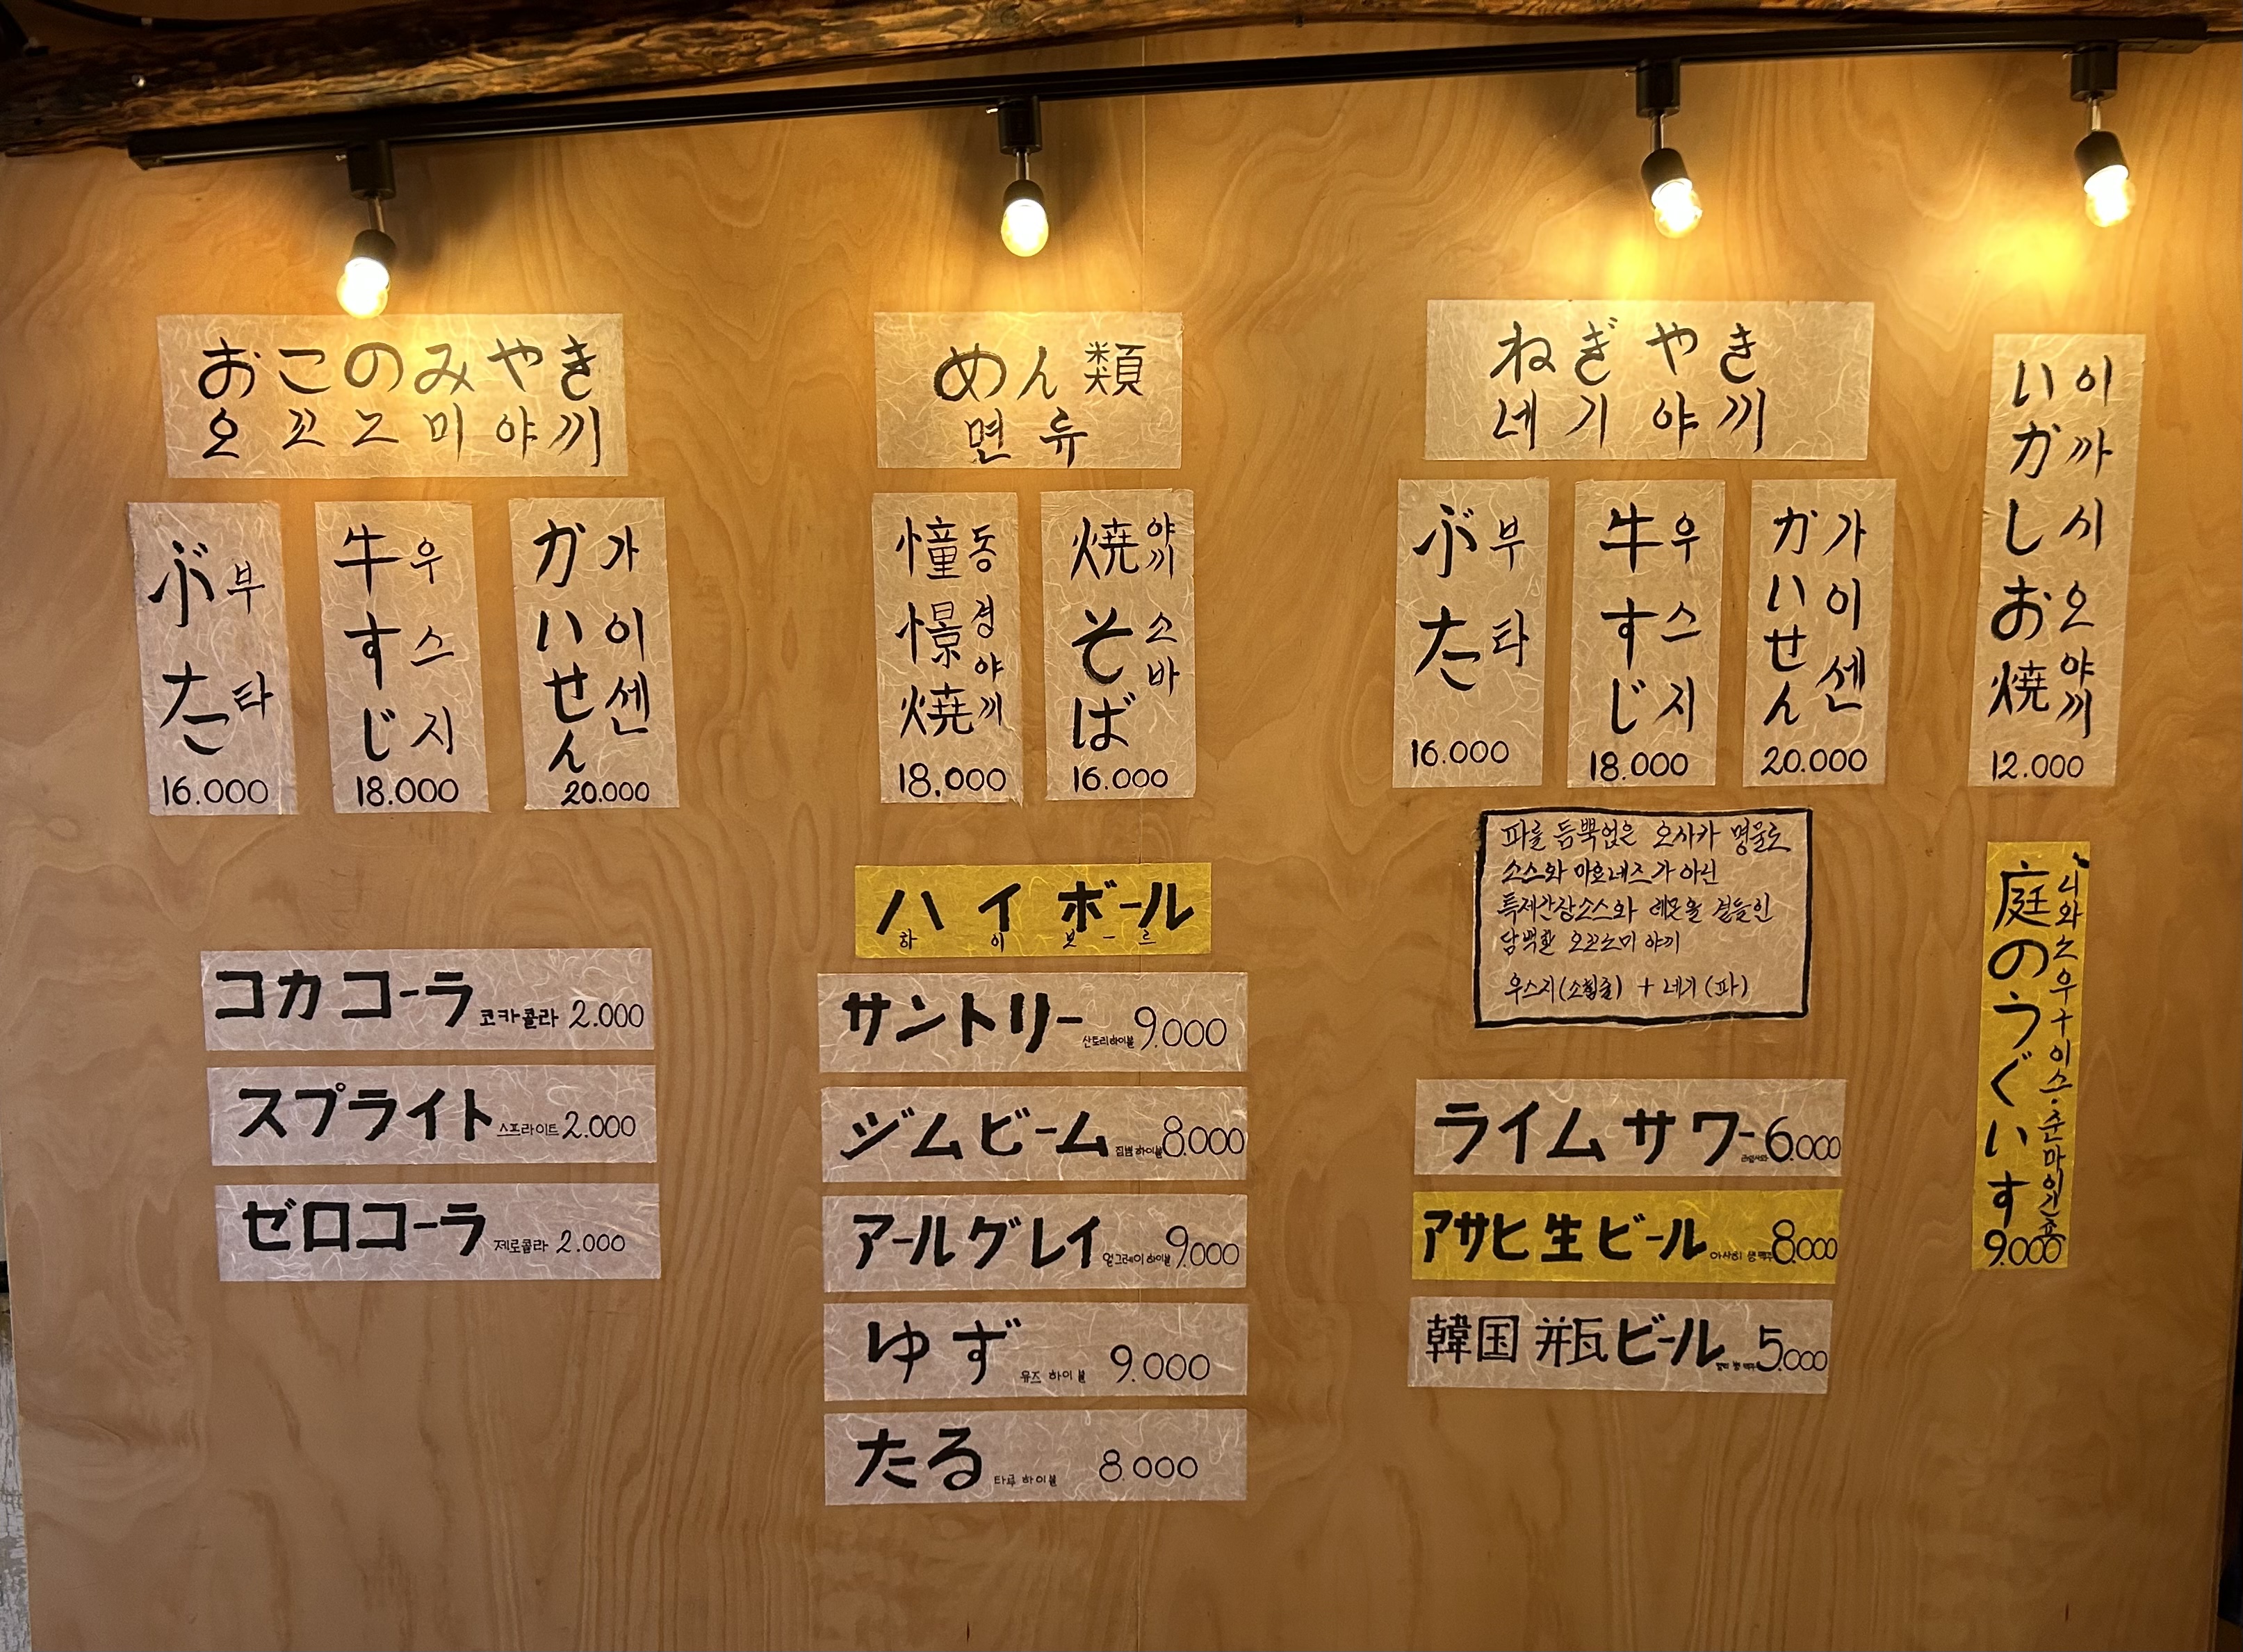 おこのみやき
오꼬노미야끼
ぶた 부타
16.000
牛すじ 우스지
18.000
かいせん 가이센
20.000
めん類
면류
憧憬焼 동경야끼
18.000
焼そば 야끼소바
16.000
ねぎやき
네기야끼
ぶた 부타
16.000
牛すじ 우스지
18.000
かいせん 가이센
20.000
いかしお焼 이까시오야끼
12.000
파를 듬뿍얹은 오사카 명물로
소스와 마요네즈가 아닌
특제간장소스와 레몬을 곁들인
담백한 오꼬노미야끼
우스지(소힘줄) + 네기(파)
コカコーラ 코카콜라 2.000
スプライト 스프라이트 2.000
ゼロコーラ 제로콜라 2.000
ハイボール
하이보-르
サントリー 산토리하이볼 9.000
ジムビーム 짐빔하이볼 8.000
アールグレイ 얼그레이하이볼 9.000
ゆず 유즈 하이볼 9.000
たる 타루 하이볼 8.000
ライムサワー 6.000
アサヒ生ビール 아사히 생맥주 8.000
韓国瓶ビール 5.000
庭のうぐいす
9.000